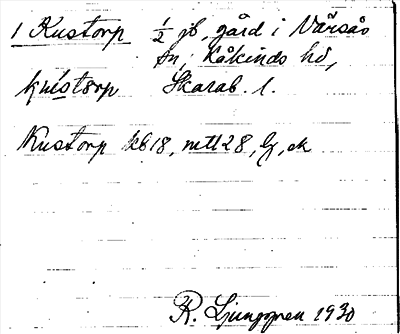 1 Kustorp ½ jb, gård i Vårsås
sn, Kåkinds hd,
Skarab. l.
Kustorp kb18, mtl 28, lg, ek
R. Ljunggren 1930